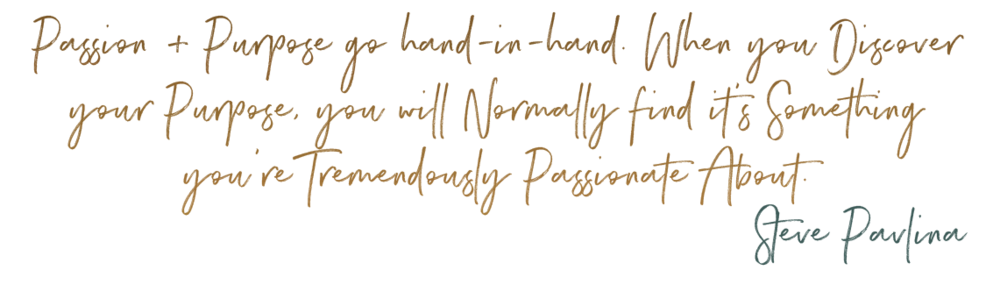 Passion + Purpose go hand-in-hand. When you Discover
your Purpose, you will Normally find it's Something
you're Tremendously Passionate About.
Steve Pavlina